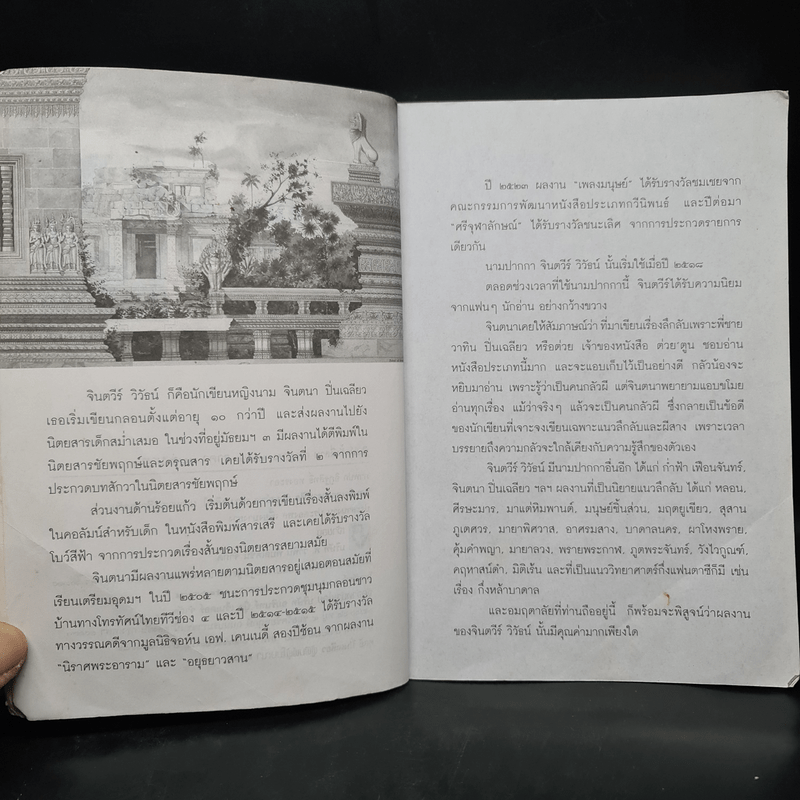 จินตวีร์ วิวัธน์ ก็คือนักเขียนหญิงนาม จินตนา ปิ่นเฉลียว
เธอเริ่มเขียนกลอนตั้งแต่อายุ ๑๐ กว่าปี และส่งผลงานไปยัง
นิตยสารเด็กสม่ำเสมอ ในช่วงที่อยู่มัธยมฯ ๓ มีผลงานได้ตีพิมพ์ใน
นิตยสารชัยพฤกษ์และดรุณสาร เคยได้รับรางวัลที่ ๒ จากการ
ประกวดบทสักวาในนิตยสารชัยพฤกษ์
ส่วนงานด้านร้อยแก้ว เริ่มต้นด้วยการเขียนเรื่องสั้นลงพิมพ์
ในคอลัมน์สำหรับเด็ก ในหนังสือพิมพ์สารเสรี และเคยได้รับรางวัล
โบว์สีฟ้า จากการประกวดเรื่องสั้นของนิตยสารสยามสมัย
จินตนามีผลงานแพร่หลายตามนิตยสารอยู่เสมอตอนสมัยที่
เรียนเตรียมอุดมฯ ในปี ๒๕๐๕ ชนะการประกวดชุมนุมกลอนชาว
บ้านทางโทรทัศน์ไทยทีวีช่อง ๔ และปี ๒๕๑๔-๒๕๑๕ ได้รับรางวัล
ทางวรรณคดีจากมูลนิธิจอห์น เอฟ. เคนเนดี้ สองปีซ้อน จากผลงาน
"นิราศพระอาราม" และ "อยุธยาวสาน"
ปี ๒๕๒๓ ผลงาน "เพลงมนุษย์" ได้รับรางวัลชมเชยจาก
คณะกรรมการพัฒนาหนังสือประเภทกวีนิพนธ์ และปีต่อมา
"ศรีจุฬาลักษณ์" ได้รับรางวัลชนะเลิศ จากการประกวดรายการ
เดียวกัน
นามปากกา จินตวีร์ วิวัธน์ นั้นเริ่มใช้เมื่อปี ๒๕๑๘
ตลอดช่วงเวลาที่ใช้นามปากกานี้ จินตวีร์ได้รับความนิยม
จากแฟนๆ นักอ่าน อย่างกว้างขวาง
จินตนาเคยให้สัมภาษณ์ว่า ที่มาเขียนเรื่องลึกลับเพราะพี่ชาย
วาทิน ปิ่นเฉลียว หรือต่วย เจ้าของหนังสือ ต่วย'ตูน ชอบอ่าน
หนังสือประเภทนี้มาก และจะแอบเก็บไว้เป็นอย่างดี กลัวน้องจะ
หยิบมาอ่าน เพราะรู้ว่าเป็นคนกลัวผี แต่จินตนาพยายามแอบขโมย
อ่านทุกเรื่อง แม้ว่าจริงๆ แล้วจะเป็นคนกลัวผี ซึ่งกลายเป็นข้อดี
ของนักเขียนที่เจาะจงเขียนเฉพาะแนวลึกลับและผีสาง เพราะเวลา
บรรยายถึงความกลัวจะใกล้เคียงกับความรู้สึกของตัวเอง
จินตวีร์ วิวัธน์ มีนามปากกาอื่นอีก ได้แก่ กำฟ้า เฟือนจันทร์,
จินตนา ปิ่นเฉลียว ฯลฯ ผลงานที่เป็นนิยายแนวลึกลับ ได้แก่ หลอน,
ศีรษะมาร, มาแต่หิมพานต์, มนุษย์ชิ้นส่วน, มฤตยูเขียว, สุสาน
ภูเตศวร, มายาพิศวาส, อาศรมสาง, บาดาลนคร, ผาโหงพราย,
คุ้มคำพญา, มายาลวง, พรายพระกาฬ, ภูตพระจันทร์, วังไวกูณฑ์,
คฤหาสน์ดำ, มิติเร้น และที่เป็นแนววิทยาศาสตร์กึ่งแฟนตาซีก็มี เช่น
เรื่อง กิ่งหล้าบาดาล
และอมฤตาลัยที่ท่านถืออยู่นี้ ก็พร้อมจะพิสูจน์ว่าผลงาน
ของจินตวีร์ วิวัธน์ นั้นมีคุณค่ามากเพียงใด